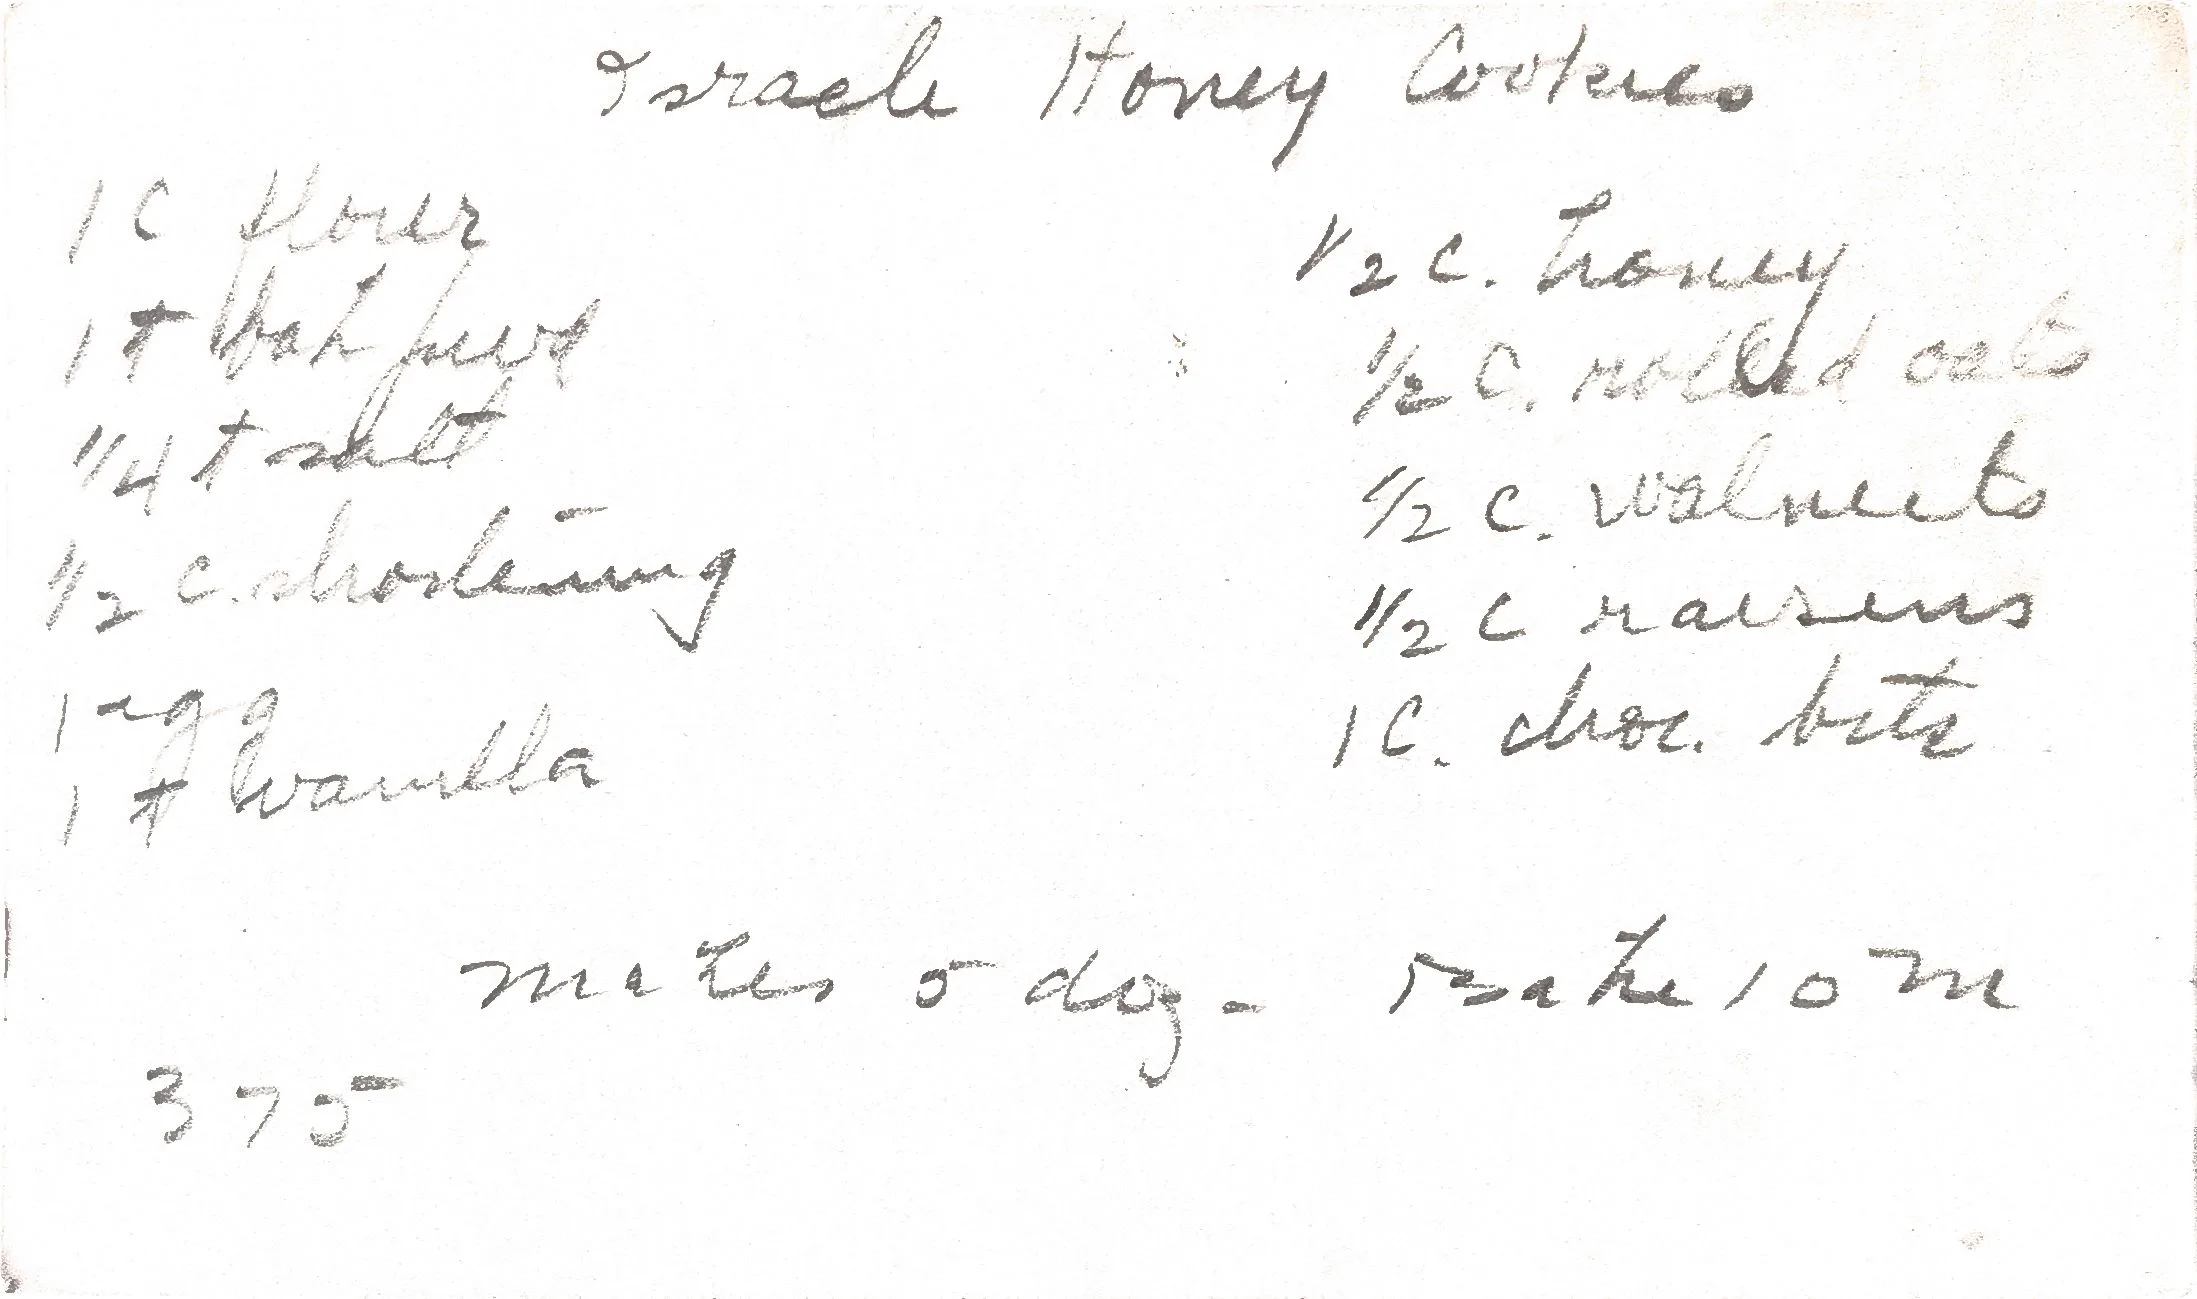 Israeli Honey Cookies
1 C flour
1 t bak powd
1/4 t salt
1/2 c. shortening
1 egg
1 t vanilla
1/2 c. honey
1/2 C. rolled oats
1/2 c. walnuts
1/2 c raisins
1 C. choc. bits
Makes 5 doz - Bake 10 m
375